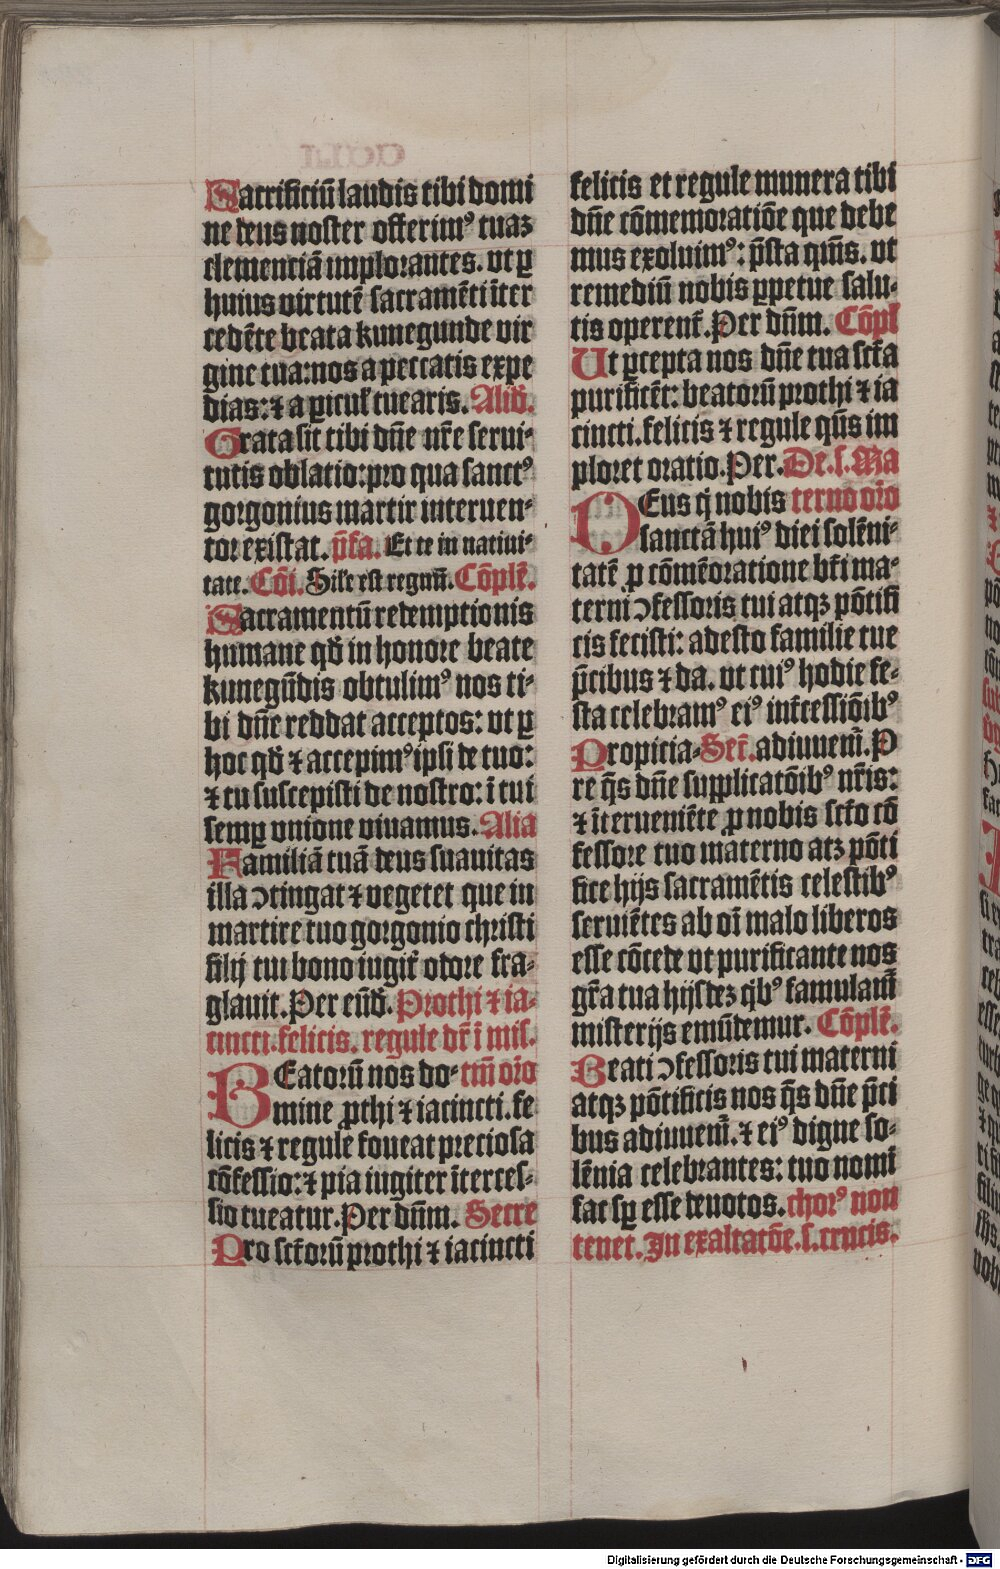 Sacrificiū laudis tibi domi
ne deus noster offerimꝰ tuaꝫ
clementiā implorantes. vt ꝑ
huius virtutē sacramēti īter
cedēte beata kunegunde vir
gine tua: nos a peccatis expe
dias: ⁊ a ꝑicul' tuearis. Aliō.
Grata sit tibi dn̄e nr̄e serui-
tutis oblatio: pro qua sanctꝰ
gorgonius martir interuen-
tor existat. p̄fa. Et te in natiui-
tate. Cōi. Sil'e est regnū. Cōplē.
Sacramentū redemptionis
humane qđ in honore beate
kunegūdis obtulimꝰ nos ti-
bi dn̄e reddat acceptos: vt ꝑ
hoc qđ ⁊ accepimꝰ ipsi de tuo:
⁊ tu suscepisti de nostro: ī tui
semꝑ vnione viuamus. Alia
Familiā tuā deus suauitas
illa ↄtingat ⁊ vegetet que in
martire tuo gorgonio christi
filij tui bono iugit̄ odore fra-
glauit. Per eūđ. Prothi ⁊ ia-
cincti. felicis. regule dr̄ ī mis.
BEatorū nos do- tm̄ oīo
mine ꝓthi ⁊ iacincti. fe
licis ⁊ regule foueat preciosa
cōfessio: ⁊ pia iugiter īterces-
sio tueatur. Per dn̄m. Secre
Pro sct̄orū prothi ⁊ iacincti
felicis et regule munera tibi
dn̄e cōmemoratiōe que debe
mus exoluimꝰ: p̄sta qm̄s. vt
remediū nobis ꝑpetue salu-
tis operent̄. Per dn̄m. Cōpl
Ut ꝑcepta nos dn̄e tua sct̄a
purificēt: beatorū prothi ⁊ ia
cincti. felicis ⁊ regule qūs im
ploret oratio. Per. De. s. Ma
DEus q̇ nobis terno or̄o
sanctā huiꝰ diei solēni-
tatē ꝑ cōmēoratione bt̄i ma-
terni ↄfessoris tui atqꝫ pōtifi
cis fecisti: adesto familie tue
p̄cibus ⁊ da. vt cuiꝰ hodie fe-
sta celebramꝰ eiꝰ int̄cessiōibꝰ
Propicia- Sec̄. adiuuem̄. P
re q̄s dn̄e supplicatōibꝰ nr̄is:
⁊ īterueniēte ꝓ nobis sct̄o cō
fessore tuo materno atꝫ pōti
fice hijs sacramētis celestibꝰ
seruiētes ab oī malo liberos
esse cōcede vt purificante nos
gr̄a tua hijsdeꝫ q̇bꝰ famulam̄
misterijs emūdemur. Cōplē.
Beati ↄfessoris tui materni
atqꝫ pōtificis nos q̄s dn̄e p̄ci
bus adiuuem̄. ⁊ eiꝰ digne so-
lēnia celebrantes: tuo nomī
fac sꝑ esse deuotos. chorꝰ non
tenet. In exaltatōe. s. crucis.
Digitalisierung gefördert durch die Deutsche Forschungsgemeinschaft - DFG